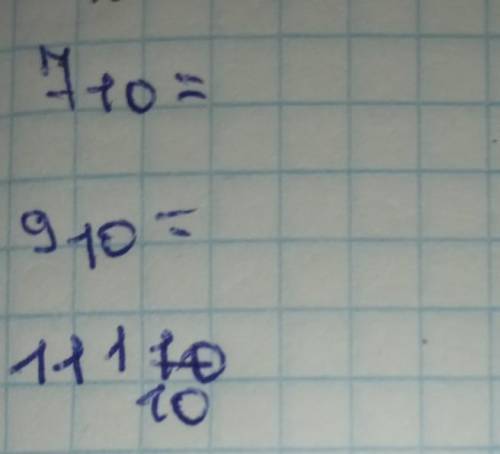 7₁₀ =
9₁₀ =
111
10